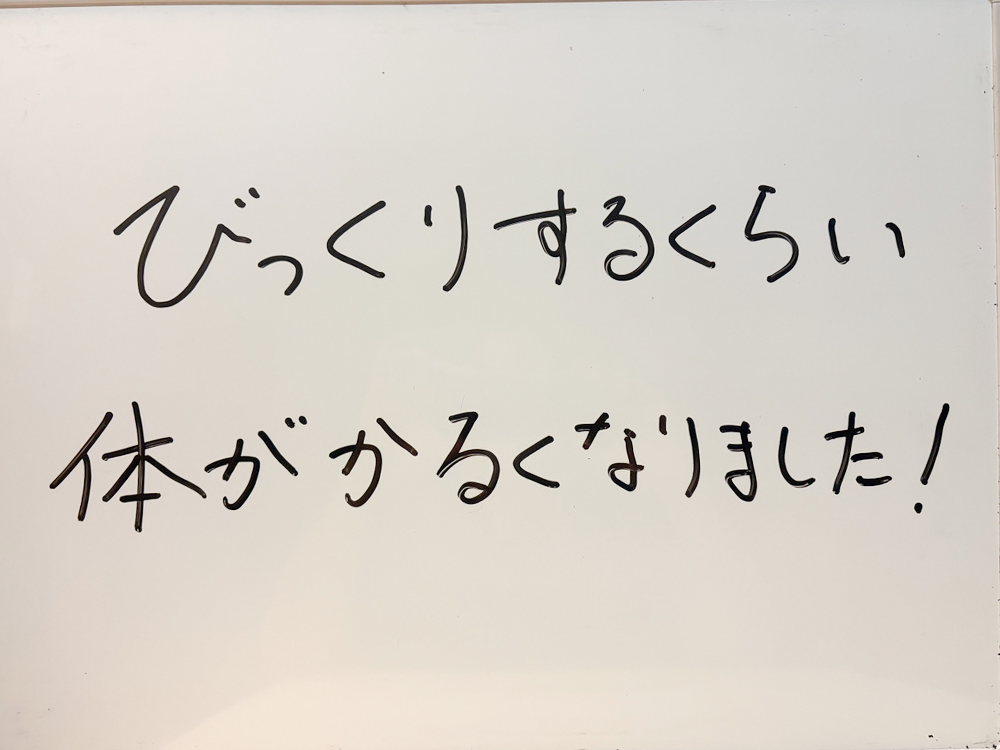 びっくりするくらい
体がかるくなりました!